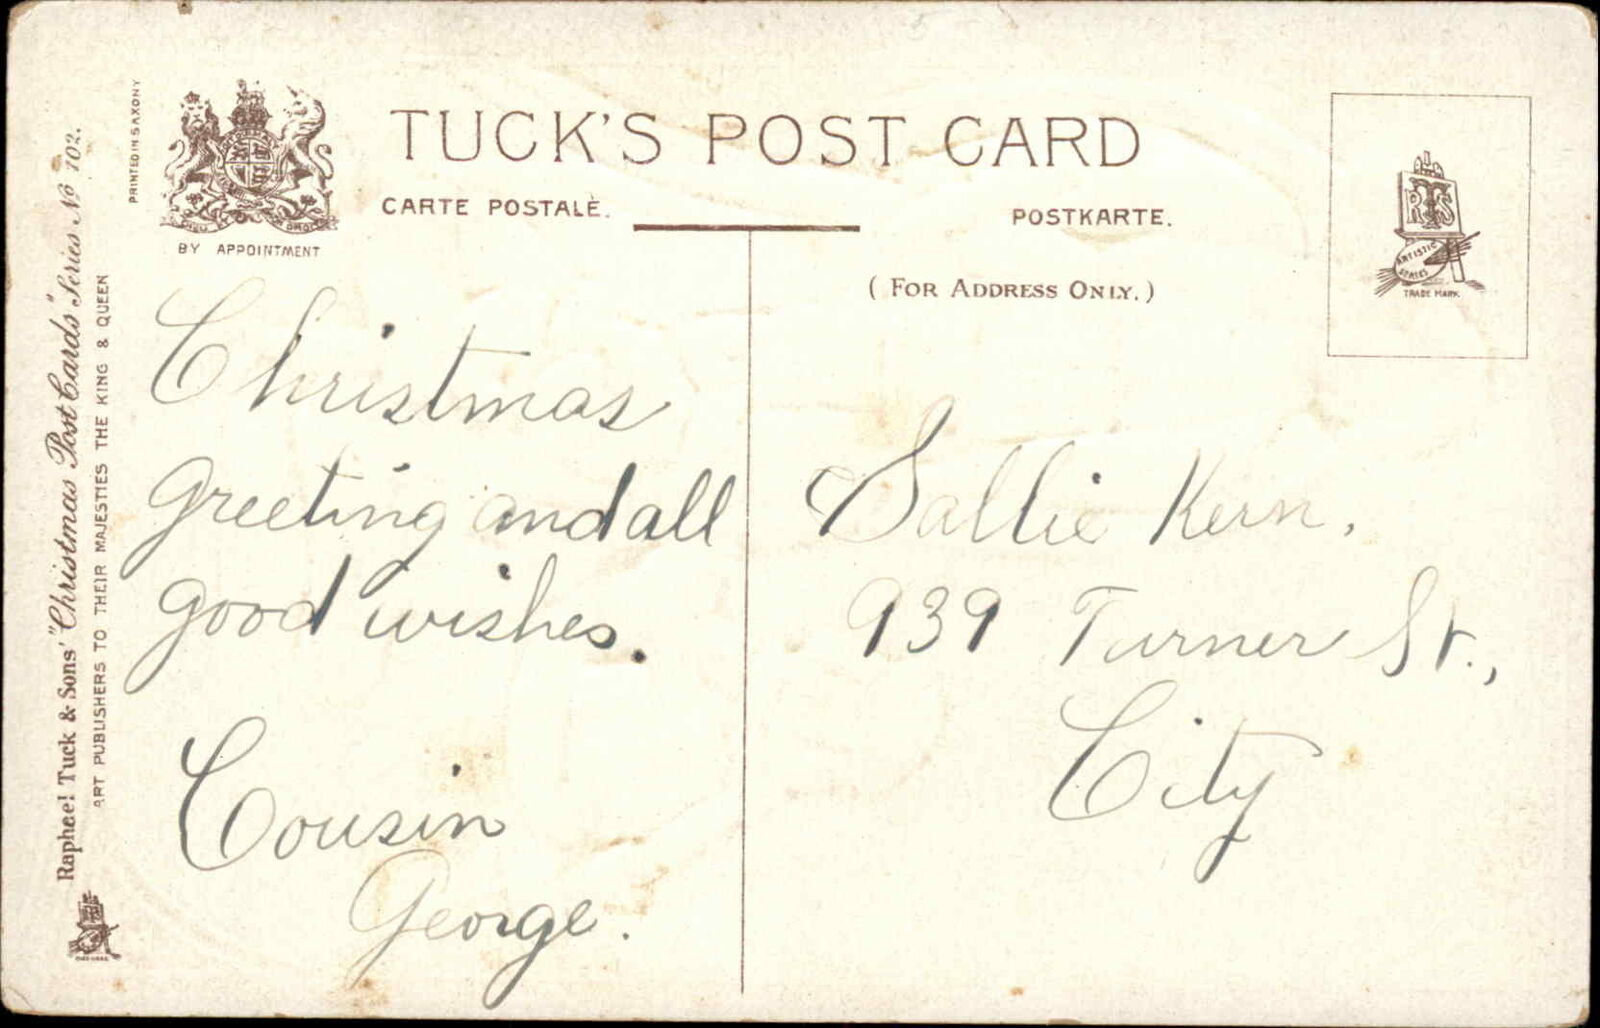 TUCK'S POST CARD
CARTE POSTALE.
POSTKARTE.
(FOR ADDRESS ONLY.)
BY APPOINTMENT
PRINTED IN SAXONY
Raphael Tuck & Sons' "Christmas Post Cards" Series No 102.
ART PUBLISHERS TO THEIR MAJESTIES THE KING & QUEEN
RTS
ARTISTIC
SERIES
TRADE MARK.
Christmas
Greeting and all
good wishes.
Cousin
George.
Sallie Kern,
939 Turner St.,
City